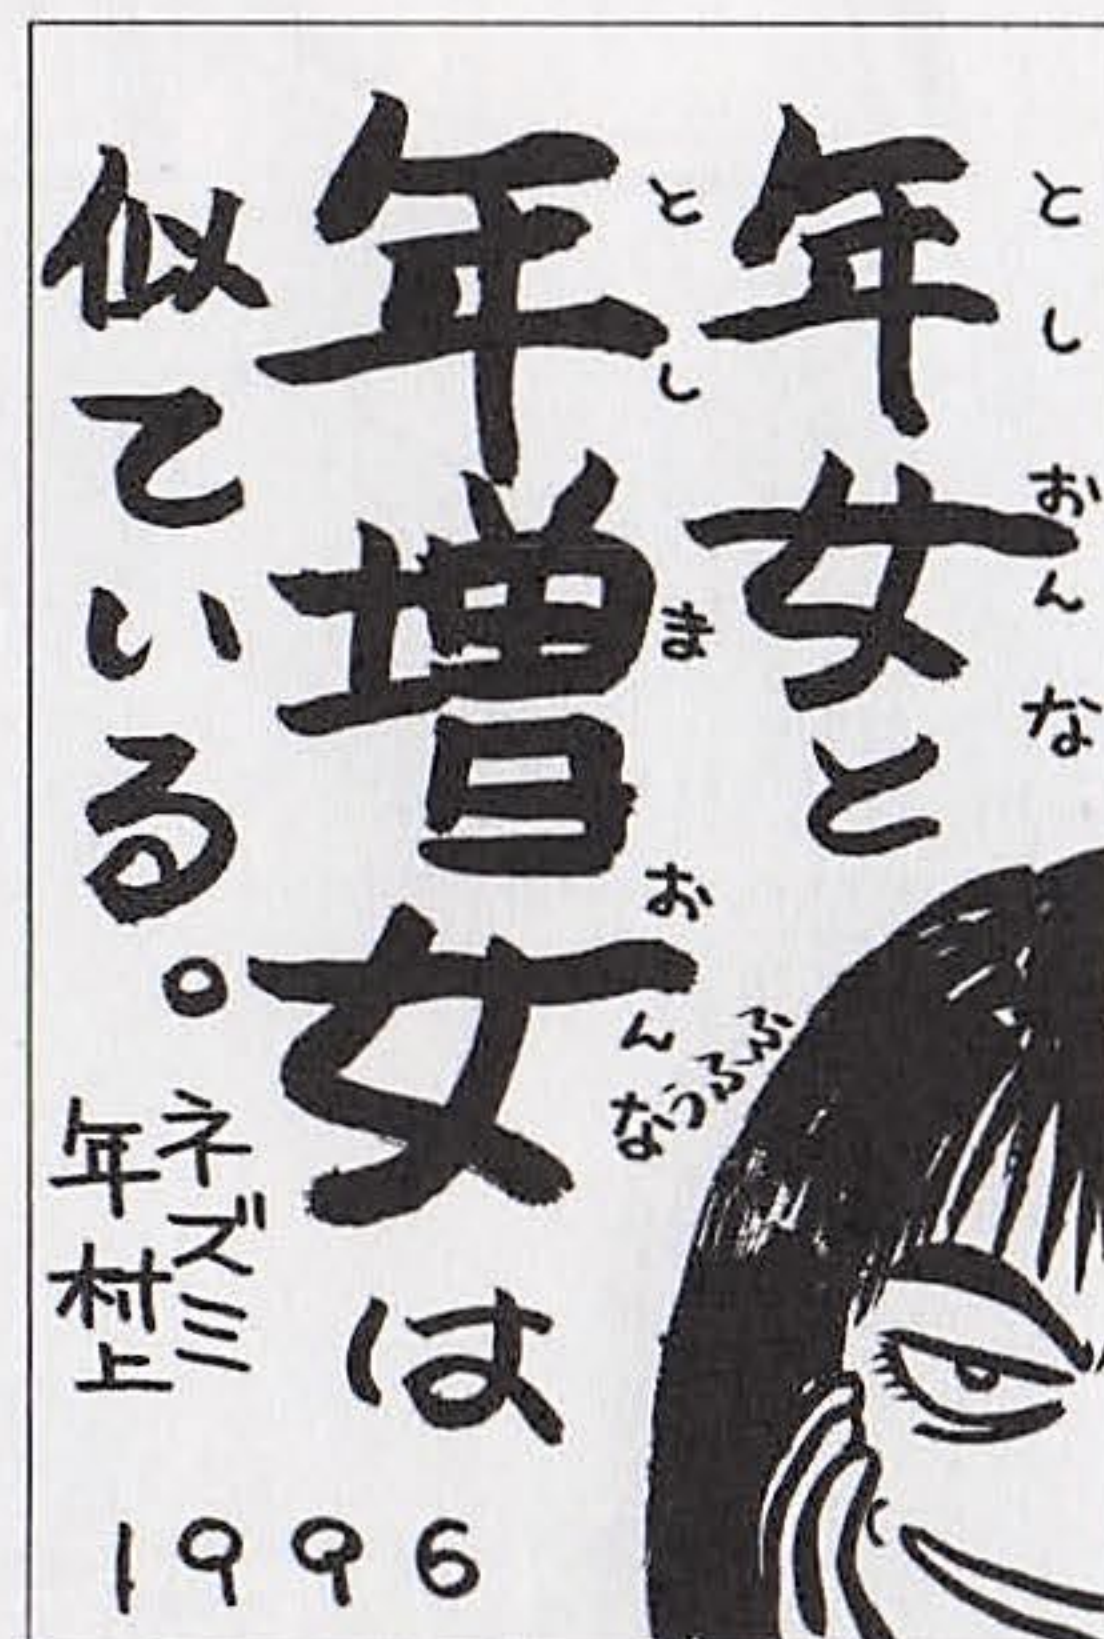 年女と
としおんな
年増女は
としまおんな
うふふふ
似ている。
ネズミ
年村上
1996